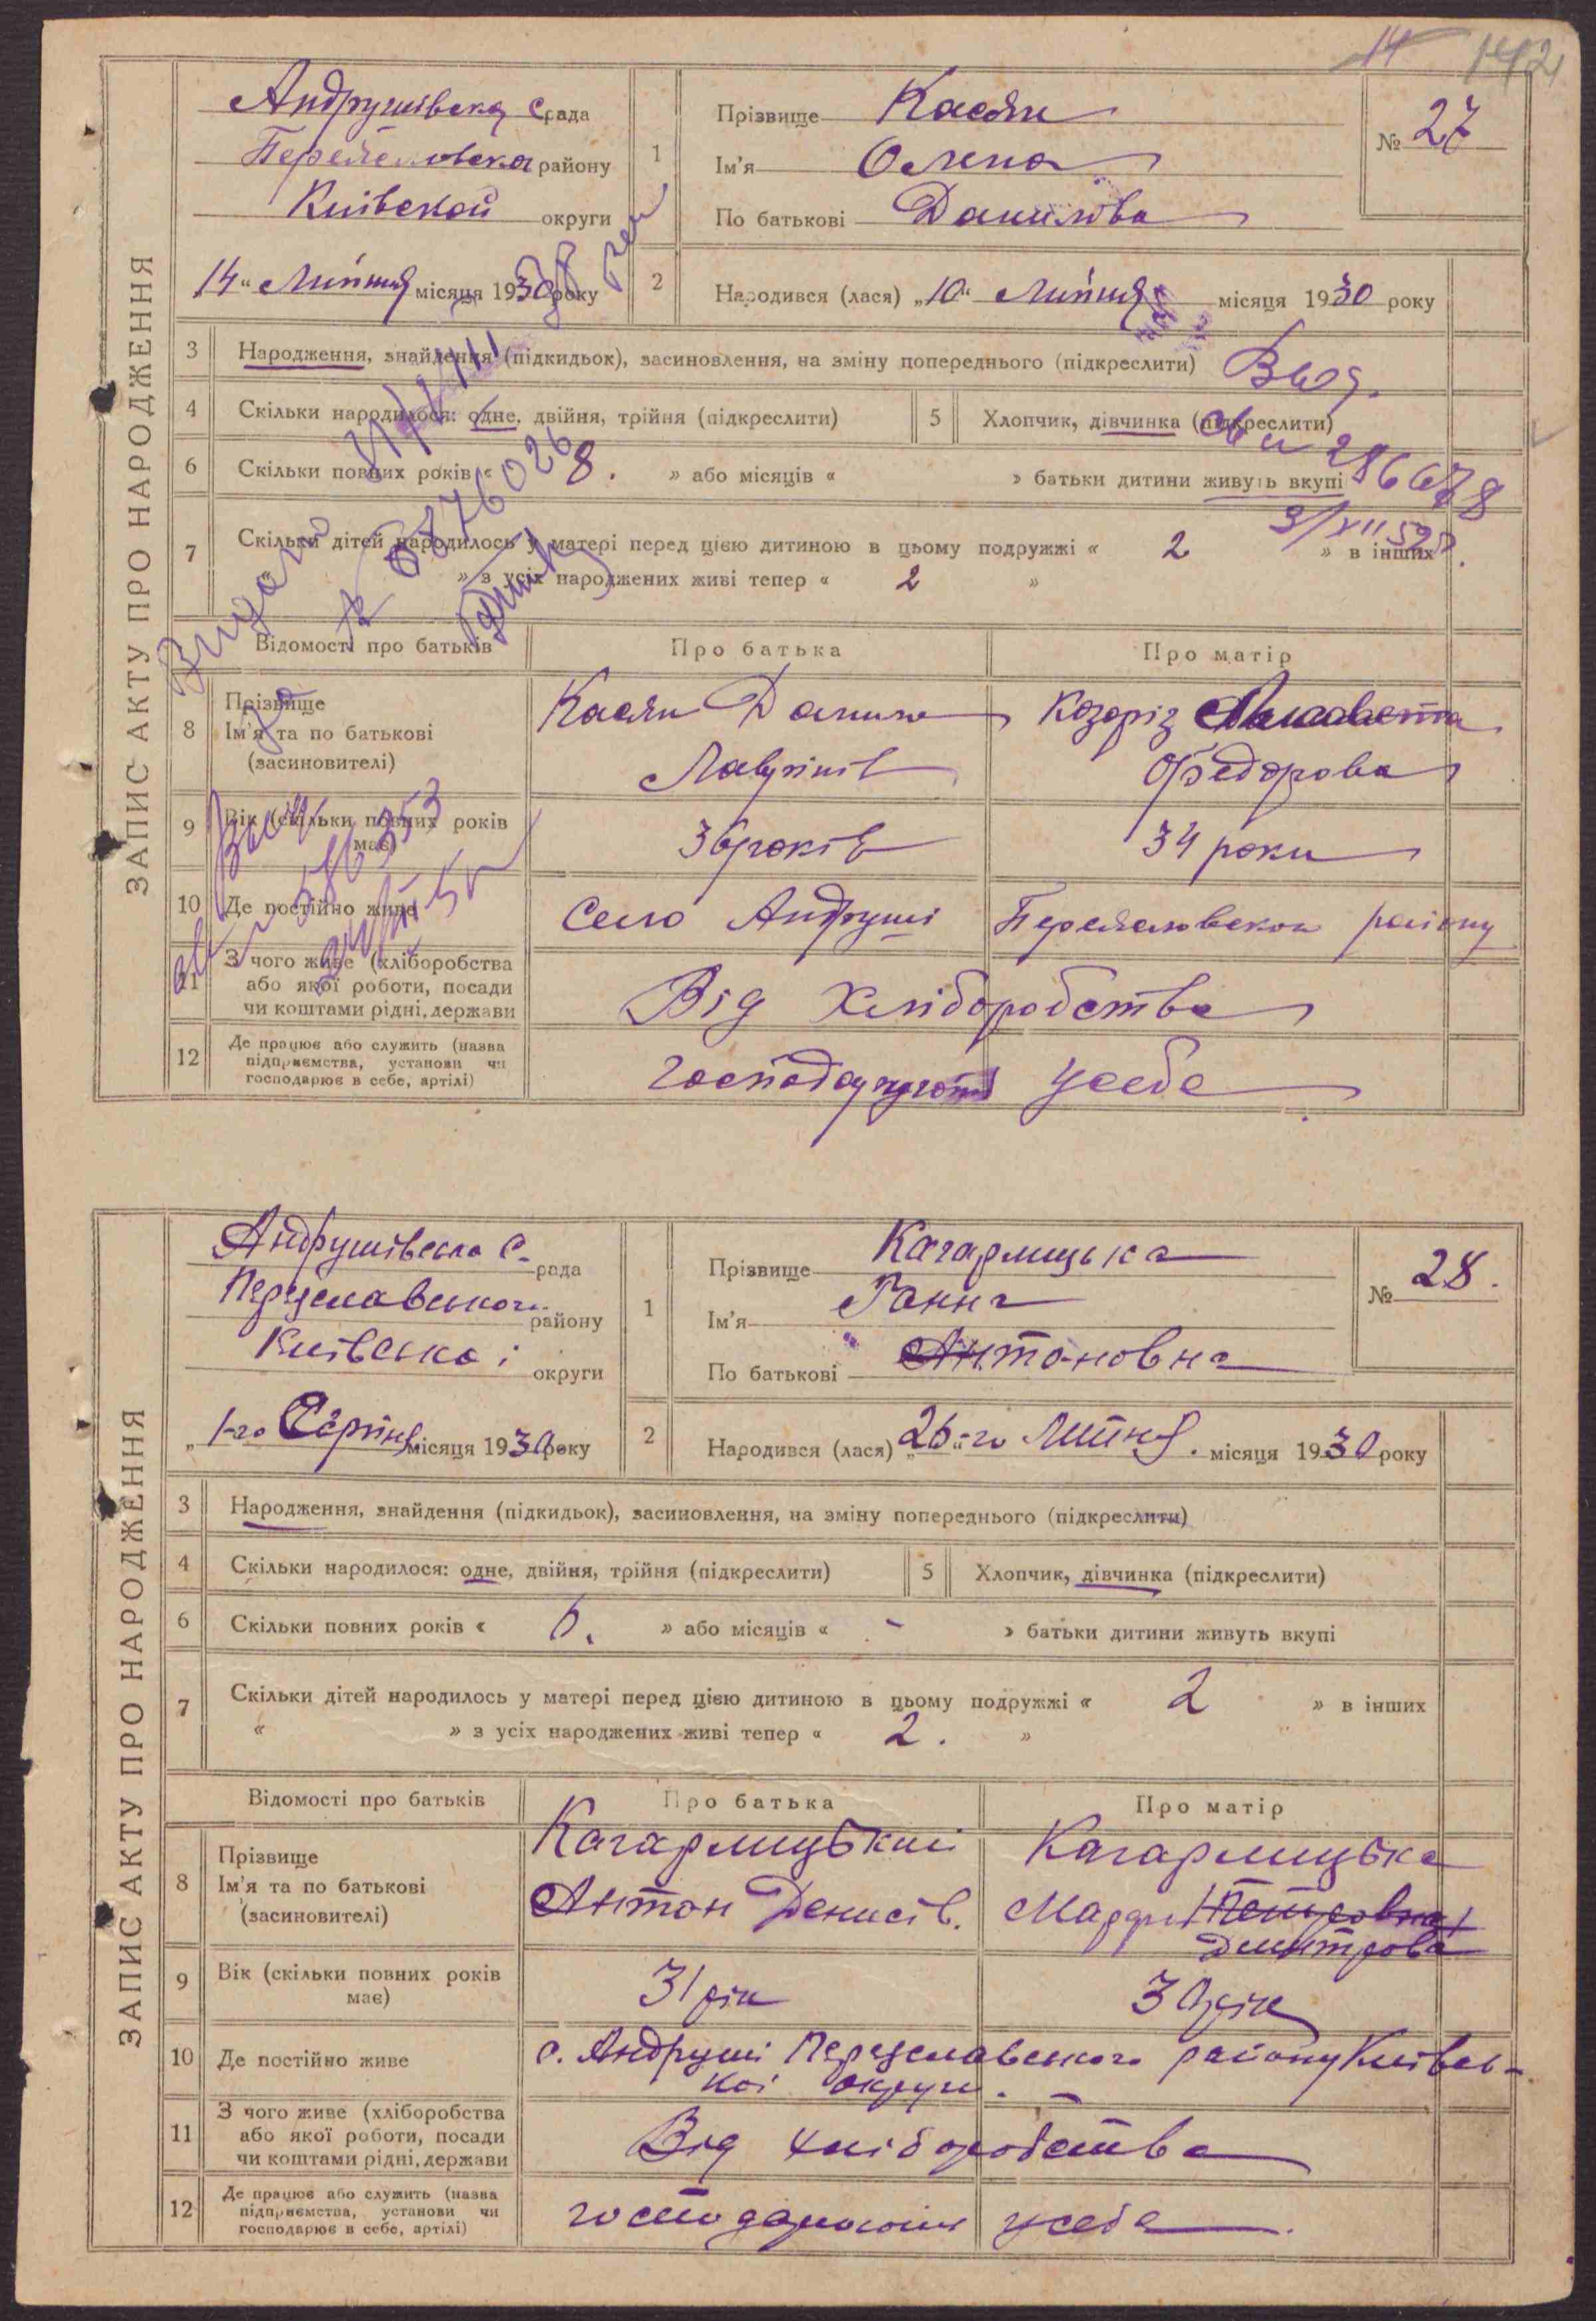 14 142
ЗАПИС АКТУ ПРО НАРОДЖЕННЯ
Андрушівська с рада
району
Київской округи
„14“ Липня місяця 1930 року
1
Прізвище Касян
Ім'я Олена
По батькові Данилова
№ 27
2
Народився (лася) „10“ Липня місяця 1930 року
3 Народження, знайдення (підкидьок), засиновлення, на зміну попереднього (підкреслити)
4 Скільки народилося: одне, двійня, трійня (підкреслити)
5 Хлопчик, дівчинка (підкреслити)
6 Скільки повних років « 8. » або місяців « » батьки дитини живуть вкупі
286678
7 Скільки дітей народилось у матері перед цією дитиною в цьому подружжі « 2 » в інших
« » з усіх народжених живі тепер « 2 »
Видано
Відомості про батьків Про батька Про матір
8 Прізвище
Ім'я та по батькові
(засиновителі)
Касян Данило
Лавринів
Козоріз Лисавета
Федорова
9 Вік (скільки повних років
має)
36 років 34 роки
10 Де постійно живе
Село Андруші району
11 З чого живе (хліборобства
або якої роботи, посади
чи коштами рідні, держави
Від хліборобства
12 Де працює або служить (назва
підприємства, установи чи
господарює в себе, артілі)
усебе
ЗАПИС АКТУ ПРО НАРОДЖЕННЯ
Андрушівська с. рада
району
Київської округи
„1-го Серпня місяця 1930 року
1
Прізвище Кагарлицька
Ім'я Ганна
По батькові Антоновна
№ 28.
2
Народився (лася) „26“-го Липня. місяця 1930 року
3 Народження, знайдення (підкидьок), засиновлення, на зміну попереднього (підкреслити)
4 Скільки народилося: одне, двійня, трійня (підкреслити)
5 Хлопчик, дівчинка (підкреслити)
6 Скільки повних років « » або місяців « - » батьки дитини живуть вкупі
7 Скільки дітей народилось у матері перед цією дитиною в цьому подружжі « 2 » в інших
« » з усіх народжених живі тепер « 2. »
Відомості про батьків Про батька Про матір
8 Прізвище
Ім'я та по батькові
(засиновителі)
Кагарлицький
Антон Денисів.
Кагарлицька
Петровна
Дмитрова
9 Вік (скільки повних років
має)
31 рік 30 рік
10 Де постійно живе
с. Андруші району Київсь-
кої округи.
11 З чого живе (хліборобства
або якої роботи, посади
чи коштами рідні, держави
Від хліборобства
12 Де працює або служить (назва
підприємства, установи чи
господарює в себе, артілі)
усебе